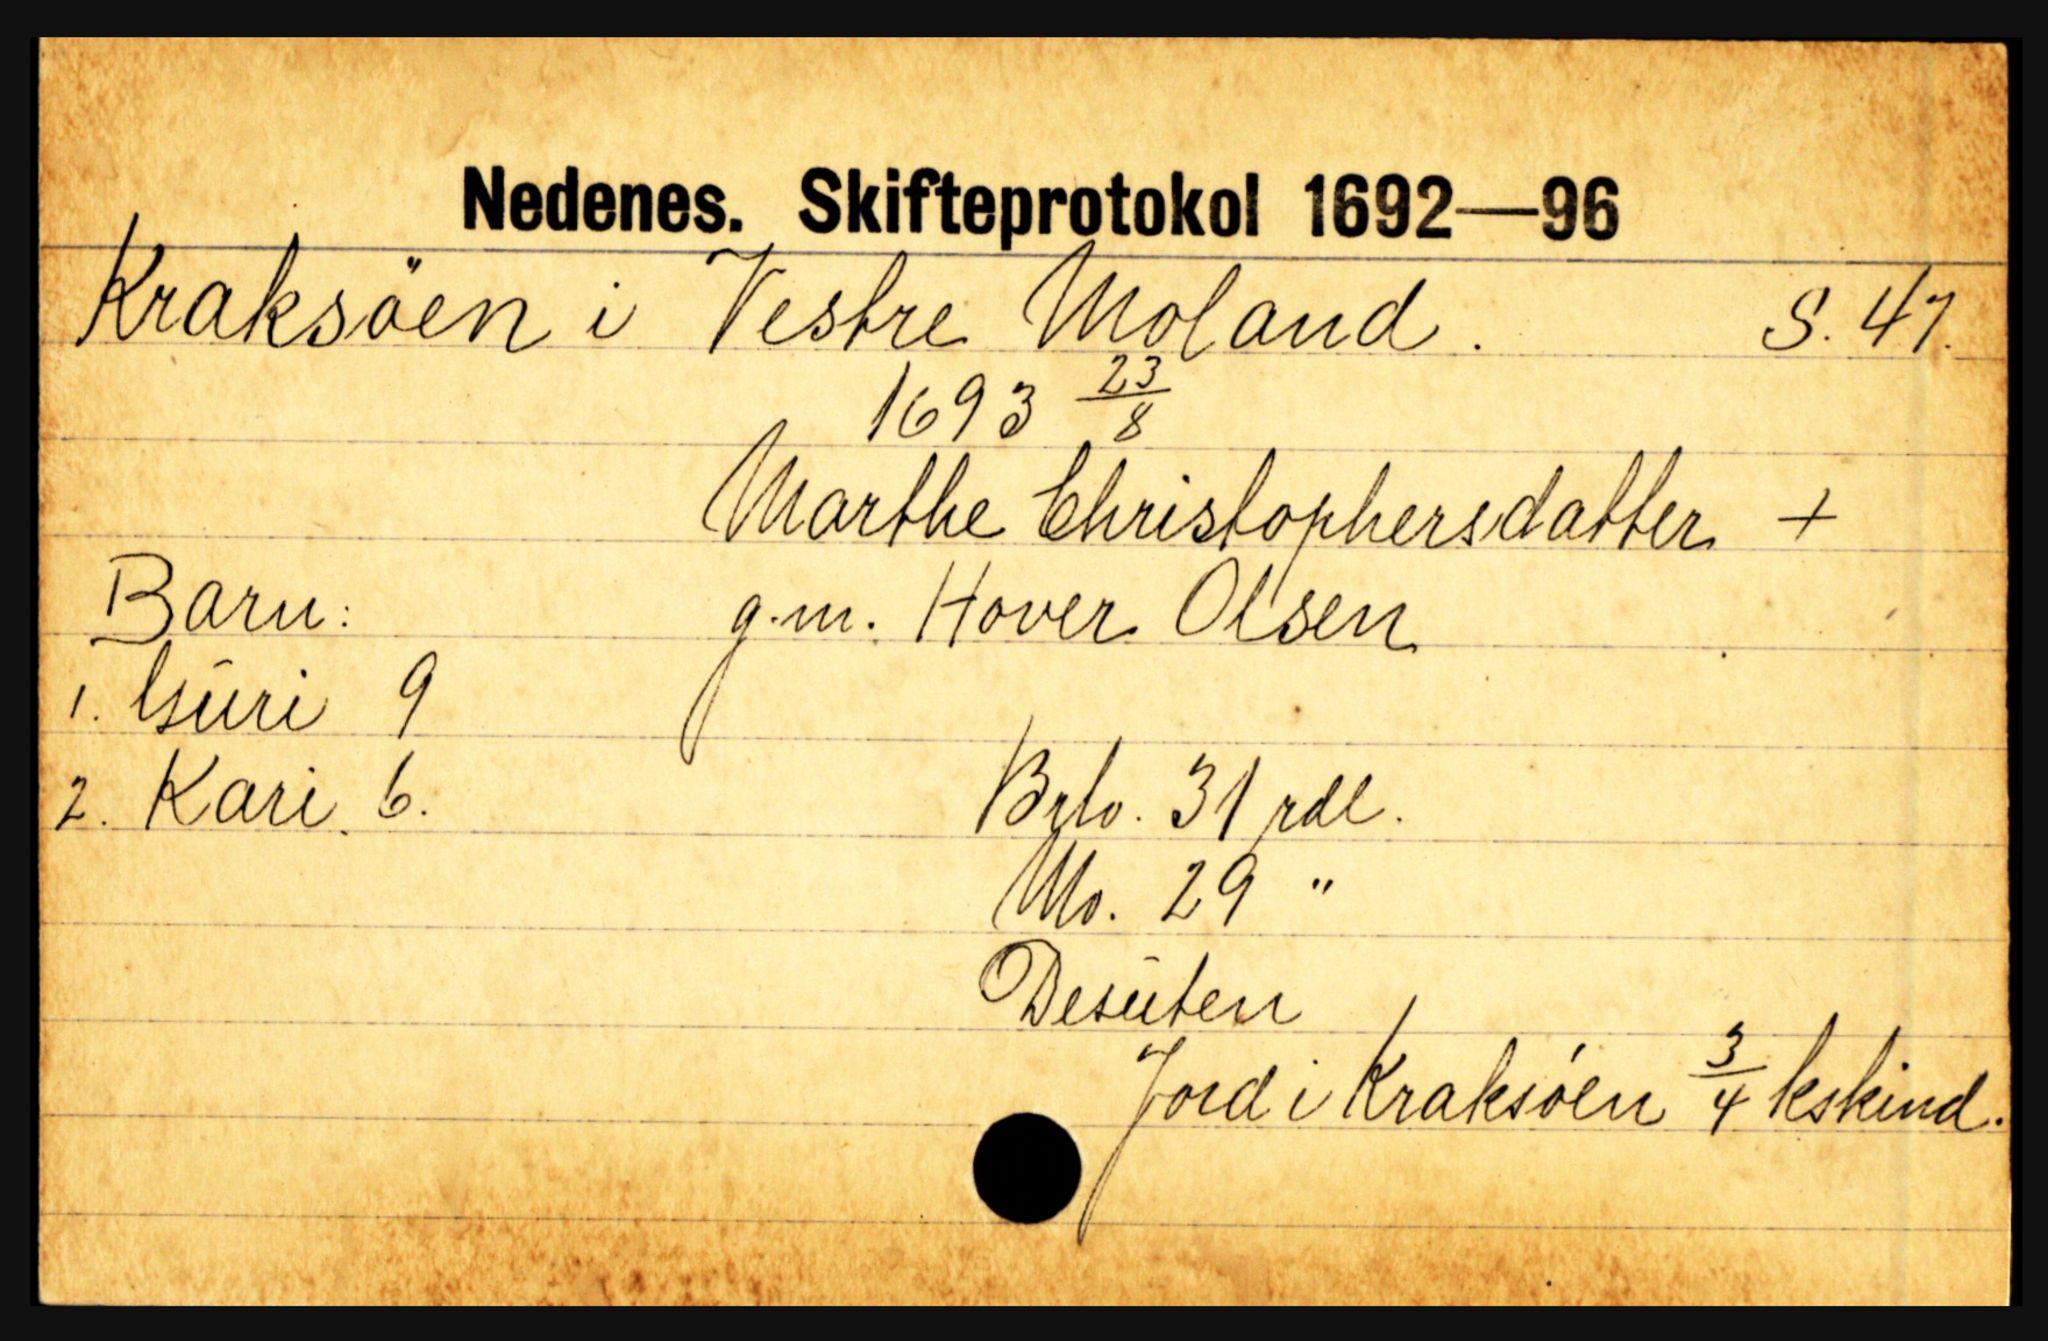 Nedenes. Skifteprotokol 1692—96
Kraksöen i Vestre Moland. S. 47.
1693 23/8
Marthe Christophersdatter +
Barn: g.m. Hover Olsen
1. Guri 9
2. Kari 6. Brto. 31 rdl.
No. 29 "
Desuten
Jord i Kraksöen 3/4 kskind.